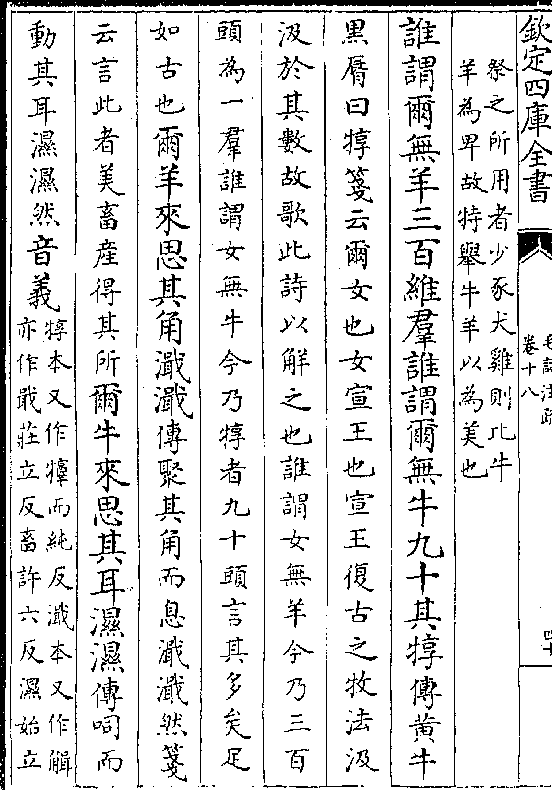 欽定四庫全書
毛詩注疏
卷十八
四十
祭之所用者少豕犬雞則比牛
羊為卑故特舉牛羊以為美也
誰謂爾無羊三百維羣誰謂爾無牛九十其犉傳黄牛
黒脣曰犉箋云爾女也女宣王也宣王復古之牧法汲
汲於其數故歌此詩以解之也誰謂女無羊今乃三百
頭為一羣誰謂女無牛今乃犉者九十頭言其多矣足
如古也爾羊來思其角濈濈傳聚其角而息濈濈然箋
云言此者美畜産得其所爾牛來思其耳濕濕傳呞而
動其耳濕濕然音義
犉本又作犝而純反濈本又作觡
亦作戢莊立反畜許六反濕始立